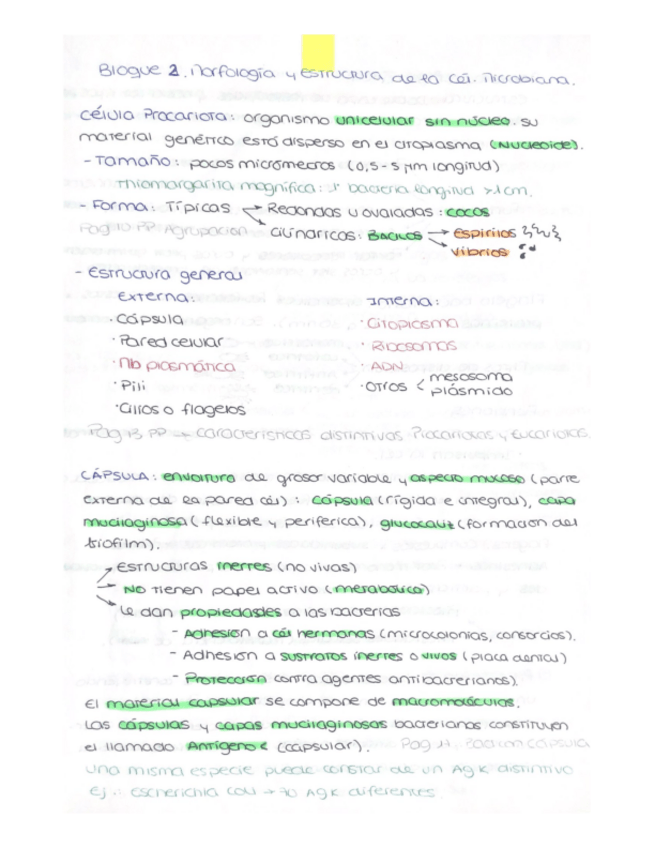 Bloque 2. Morfología y estructura de la cél. Microbiana.
Célula Procariota: organismo unicelular sin núcleo. su
material genético está disperso en el citoplasma (Nucleoide).
- Tamaño: pocos micrómetros (0,5-5 µm longitud)
Thiomargarita magnífica: 1ª bacteria longitud >1cm.
- Forma: Típicas → Redondas u ovaladas: cocos
Pag 10 PP: Agrupación → Cilíndricas: Bacilos → espirilos
→ vibrios
- Estructura general
Externa: Interna:
· Cápsula · Citoplasma
· Pared celular · Ribosomas
· Mb plasmática · ADN
· Pili · Otros < mesosoma plásmido
· Cilios o flagelos
Pag 13 PP → características distintivas Procariotas y Eucariotas.
CÁPSULA: envoltura de grosor variable y aspecto mucoso (parte
externa de la pared cél): cápsula (rígida e integral), capa
mucilaginosa (flexible y periférica), glucocaliz (formación del
biofilm).
→ Estructuras inertes (no vivas)
→ NO tienen papel activo (metabólico)
→ Le dan propiedades a las bacterias
- Adhesión a cél hermanas (microcolonias, consorcios).
- Adhesión a sustratos inertes o vivos (placa dental)
- Protección contra agentes antibacterianos).
El material capsular se compone de macromoléculas.
Las cápsulas y capas mucilaginosas bacterianas constituyen
el llamado Antígeno K (capsular). Pag 14.
una misma especie puede constar de un Ag K distintivo
Ej.: Escherichia coli → 70 Ag K diferentes.